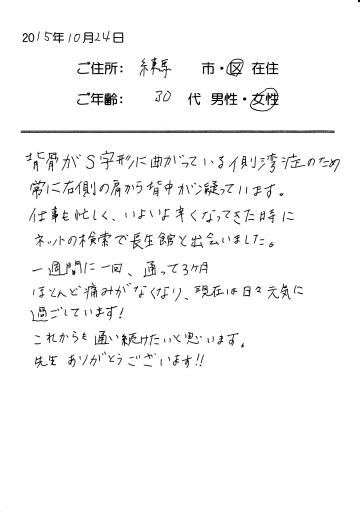 2015年10月24日
ご住所: 練馬 市・区 在住
ご年齢: 30 代 男性・女性
背骨がS字形に曲がっている側湾症のため
常に右側の肩から背中がこ凝っています。
仕事も忙しく、いよいよ辛くなってきた時に
ネットの検索で長生館と出会いました。
一週間に一回、通って3ヶ月
ほとんど痛みがなくなり、現在は日々元気に
過ごしています!
これからも通い続けたいと思います。
先生 ありがとうございます!!